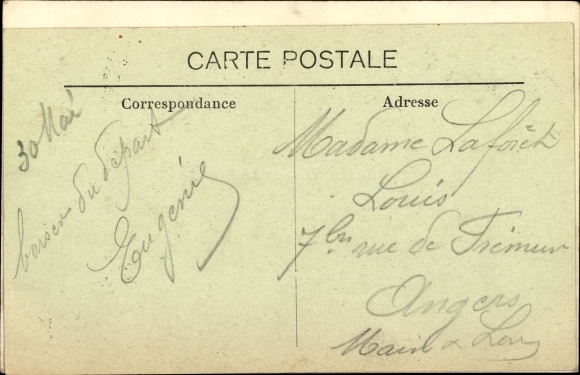 CARTE POSTALE
Correspondance
Adresse
30 Mai
baiser du départ
Eugénie
Madame Laforêt
Louis
7 bis rue de Frémur
Angers
Main & Loire